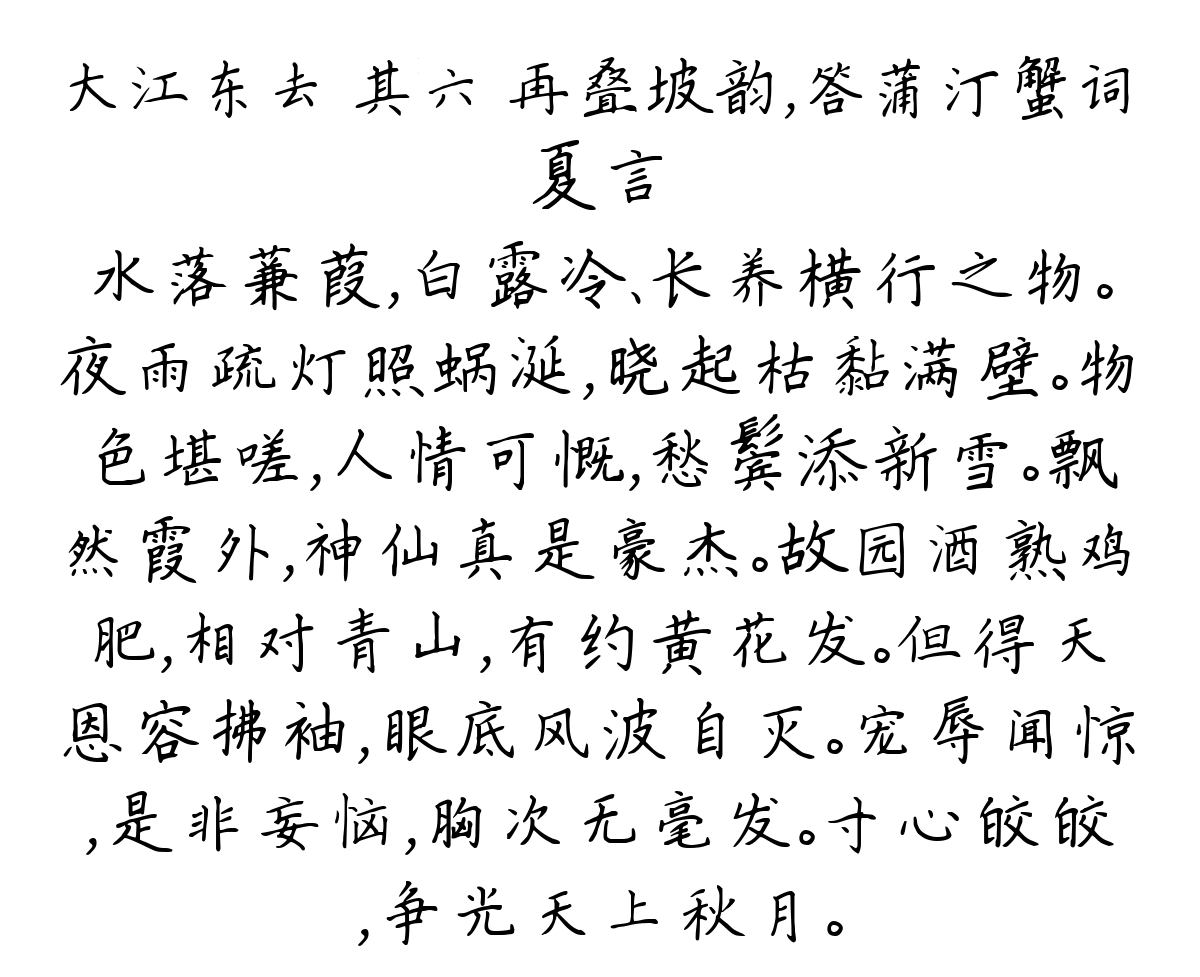 大江东去 其六 再叠坡韵,答蒲汀蟹词
夏言
水落蒹葭,白露冷、长养横行之物。
夜雨疏灯照蜗涎,晓起枯黏满壁。物
色堪嗟,人情可慨,愁鬓添新雪。飘
然霞外,神仙真是豪杰。故园酒熟鸡
肥,相对青山,有约黄花发。但得天
恩容拂袖,眼底风波自灭。宠辱闻惊
,是非妄恼,胸次无毫发。寸心皎皎
,争光天上秋月。